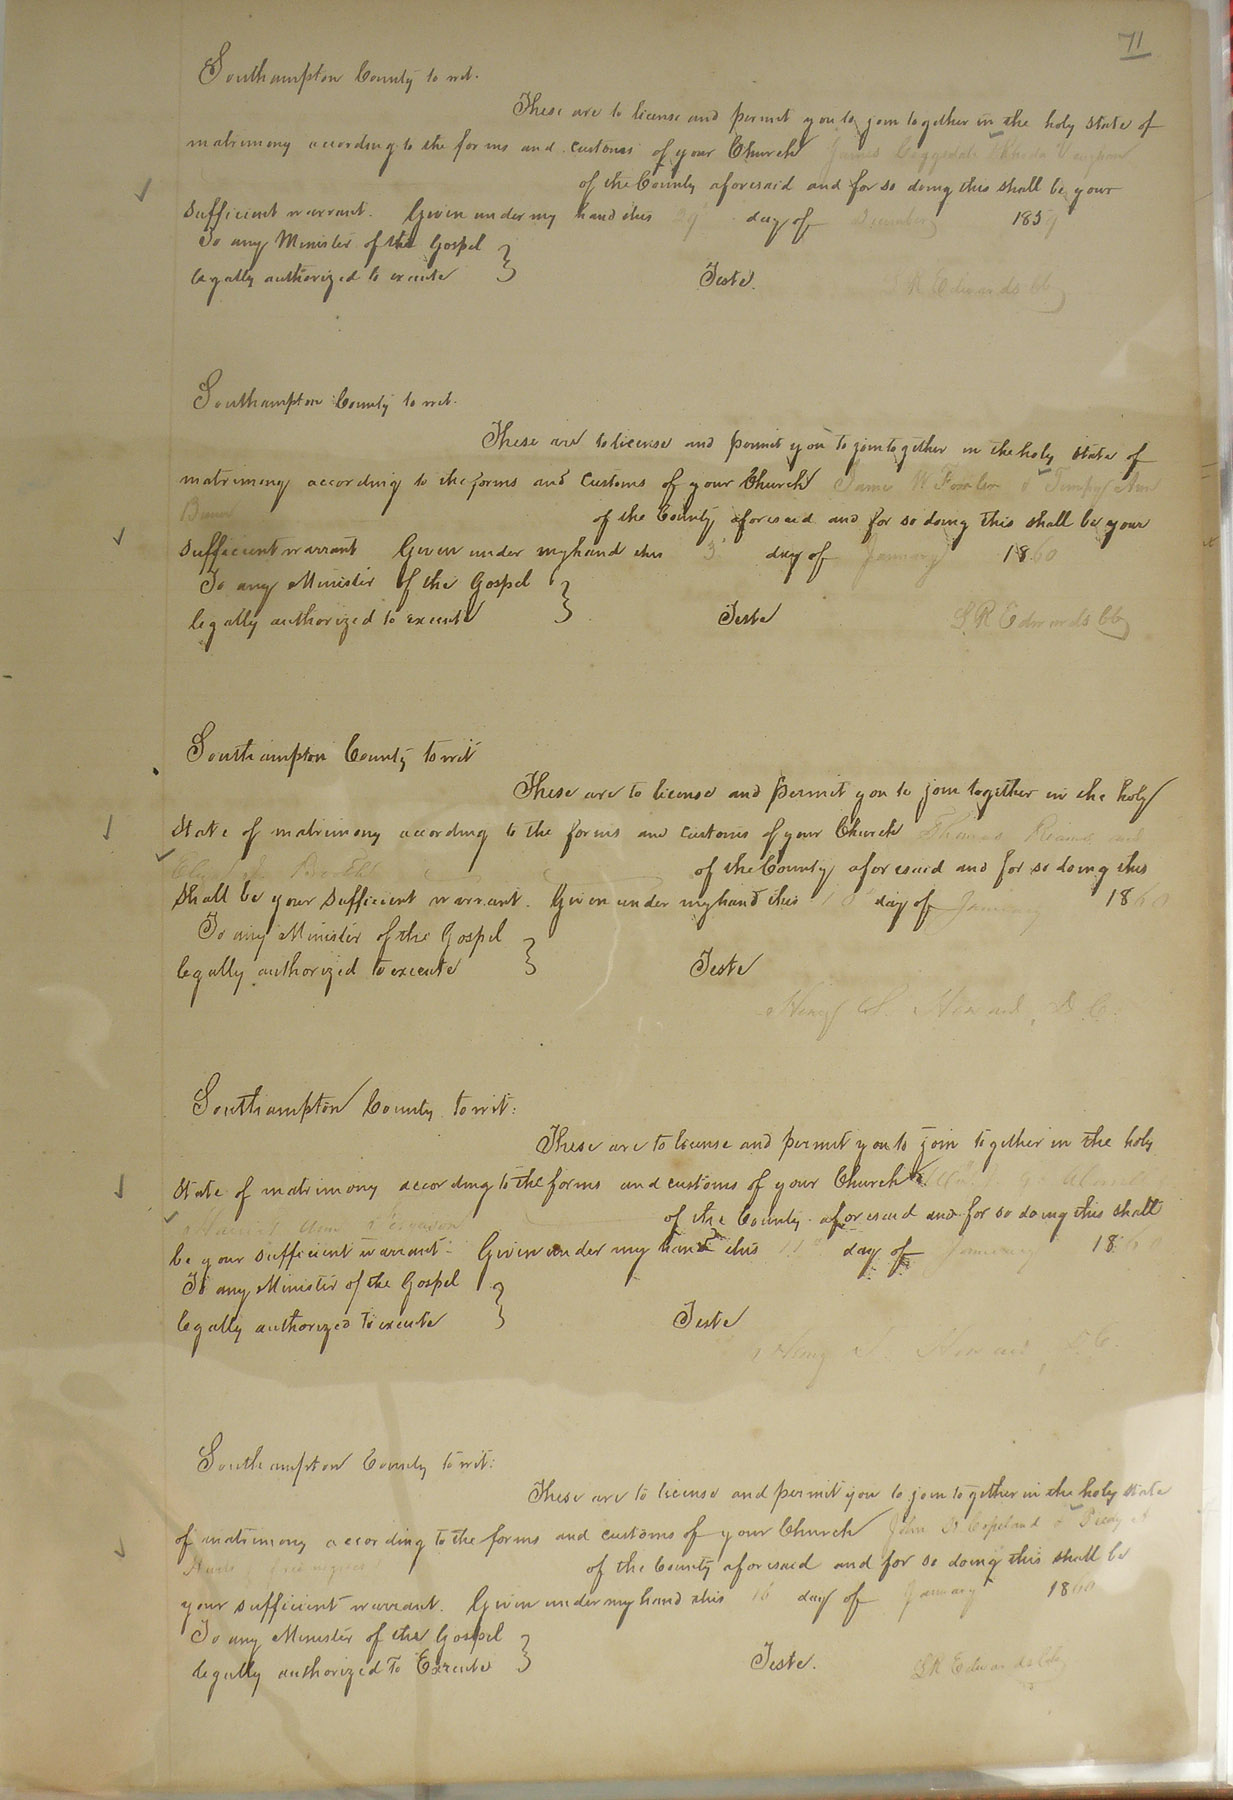 71
Southampton County to wit.
These are to license and permit you to join together in the holy state of
matrimony according to the forms and customs of your Church James Vaughan
of the County aforesaid and for so doing this shall be your
sufficient warrant. Given under my hand this 29 day of December 1859
To any Minister of the Gospel
legally authorized to execute Teste. L R Edwards Clk
Southampton County to wit.
These are to license and permit you to join together in the holy state of
matrimony according to the forms and customs of your Church James W &
of the County aforesaid and for so doing this shall be your
sufficient warrant Given under my hand this 3 day of January 1860
To any Minister of the Gospel
legally authorized to execute Teste L R Edwards Clk
Southampton County to wit
These are to license and permit you to join together in the holy
state of matrimony according to the forms and customs of your Church Thomas and
of the County aforesaid and for so doing this
shall be your sufficient warrant. Given under my hand this day of January 1860
To any Minister of the Gospel
legally authorized to execute Teste
Henry S. Howard, D. C.
Southampton County to wit:
These are to license and permit you to join together in the holy
state of matrimony according to the forms and customs of your Church
Harriet Ann of the County aforesaid and for so doing this shall
be your sufficient warrant. Given under my hand this 11 day of January 1860
To any Minister of the Gospel
legally authorized to execute Teste
Henry S. Howard, D. C.
Southampton County to wit:
These are to license and permit you to join together in the holy state
of matrimony according to the forms and customs of your Church John Copeland &
of the County aforesaid and for so doing this shall be
your sufficient warrant. Given under my hand this 16 day of January 1860
To any Minister of the Gospel
legally authorized To Execute Teste. L R Edwards Clk